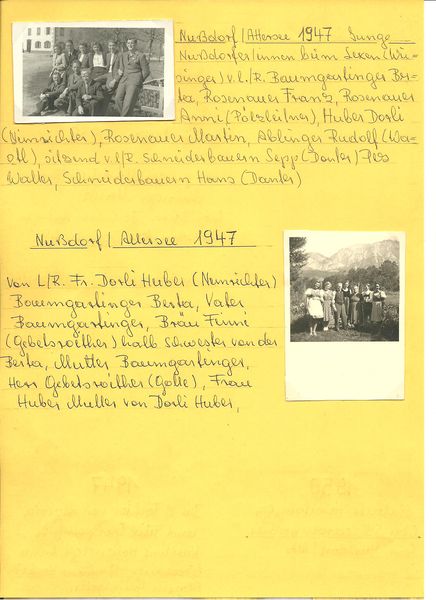 Nußdorf / Attersee 1947 Junge
Nußdorfer/innen beim Lexen (Wie=
singer) v. l./R. Baumgartinger Ber=
ta, Rosenauer Franz, Rosenauer
Anni (Pölzleitner), Huber Dorli
(Nimrichter), Rosenauer Martin, Ablinger Rudolf (Wa=
stl), sitzend v l/R. Schneiderbauern Sepp (Danter) Pes
Walter, Schneiderbauern Hans (Danter)
Nußdorf / Attersee 1947
von L/R. Fr. Dorli Huber (Nimrichter)
Baumgartinger Berta, Vater
Baumgartinger, Bräu Finni
(Gebetsroither) halb Schwester von der
Berta, Mutter Baumgartinger,
Herr Gebetsroither (Gatte), Frau
Huber Mutter von Dorli Huber,